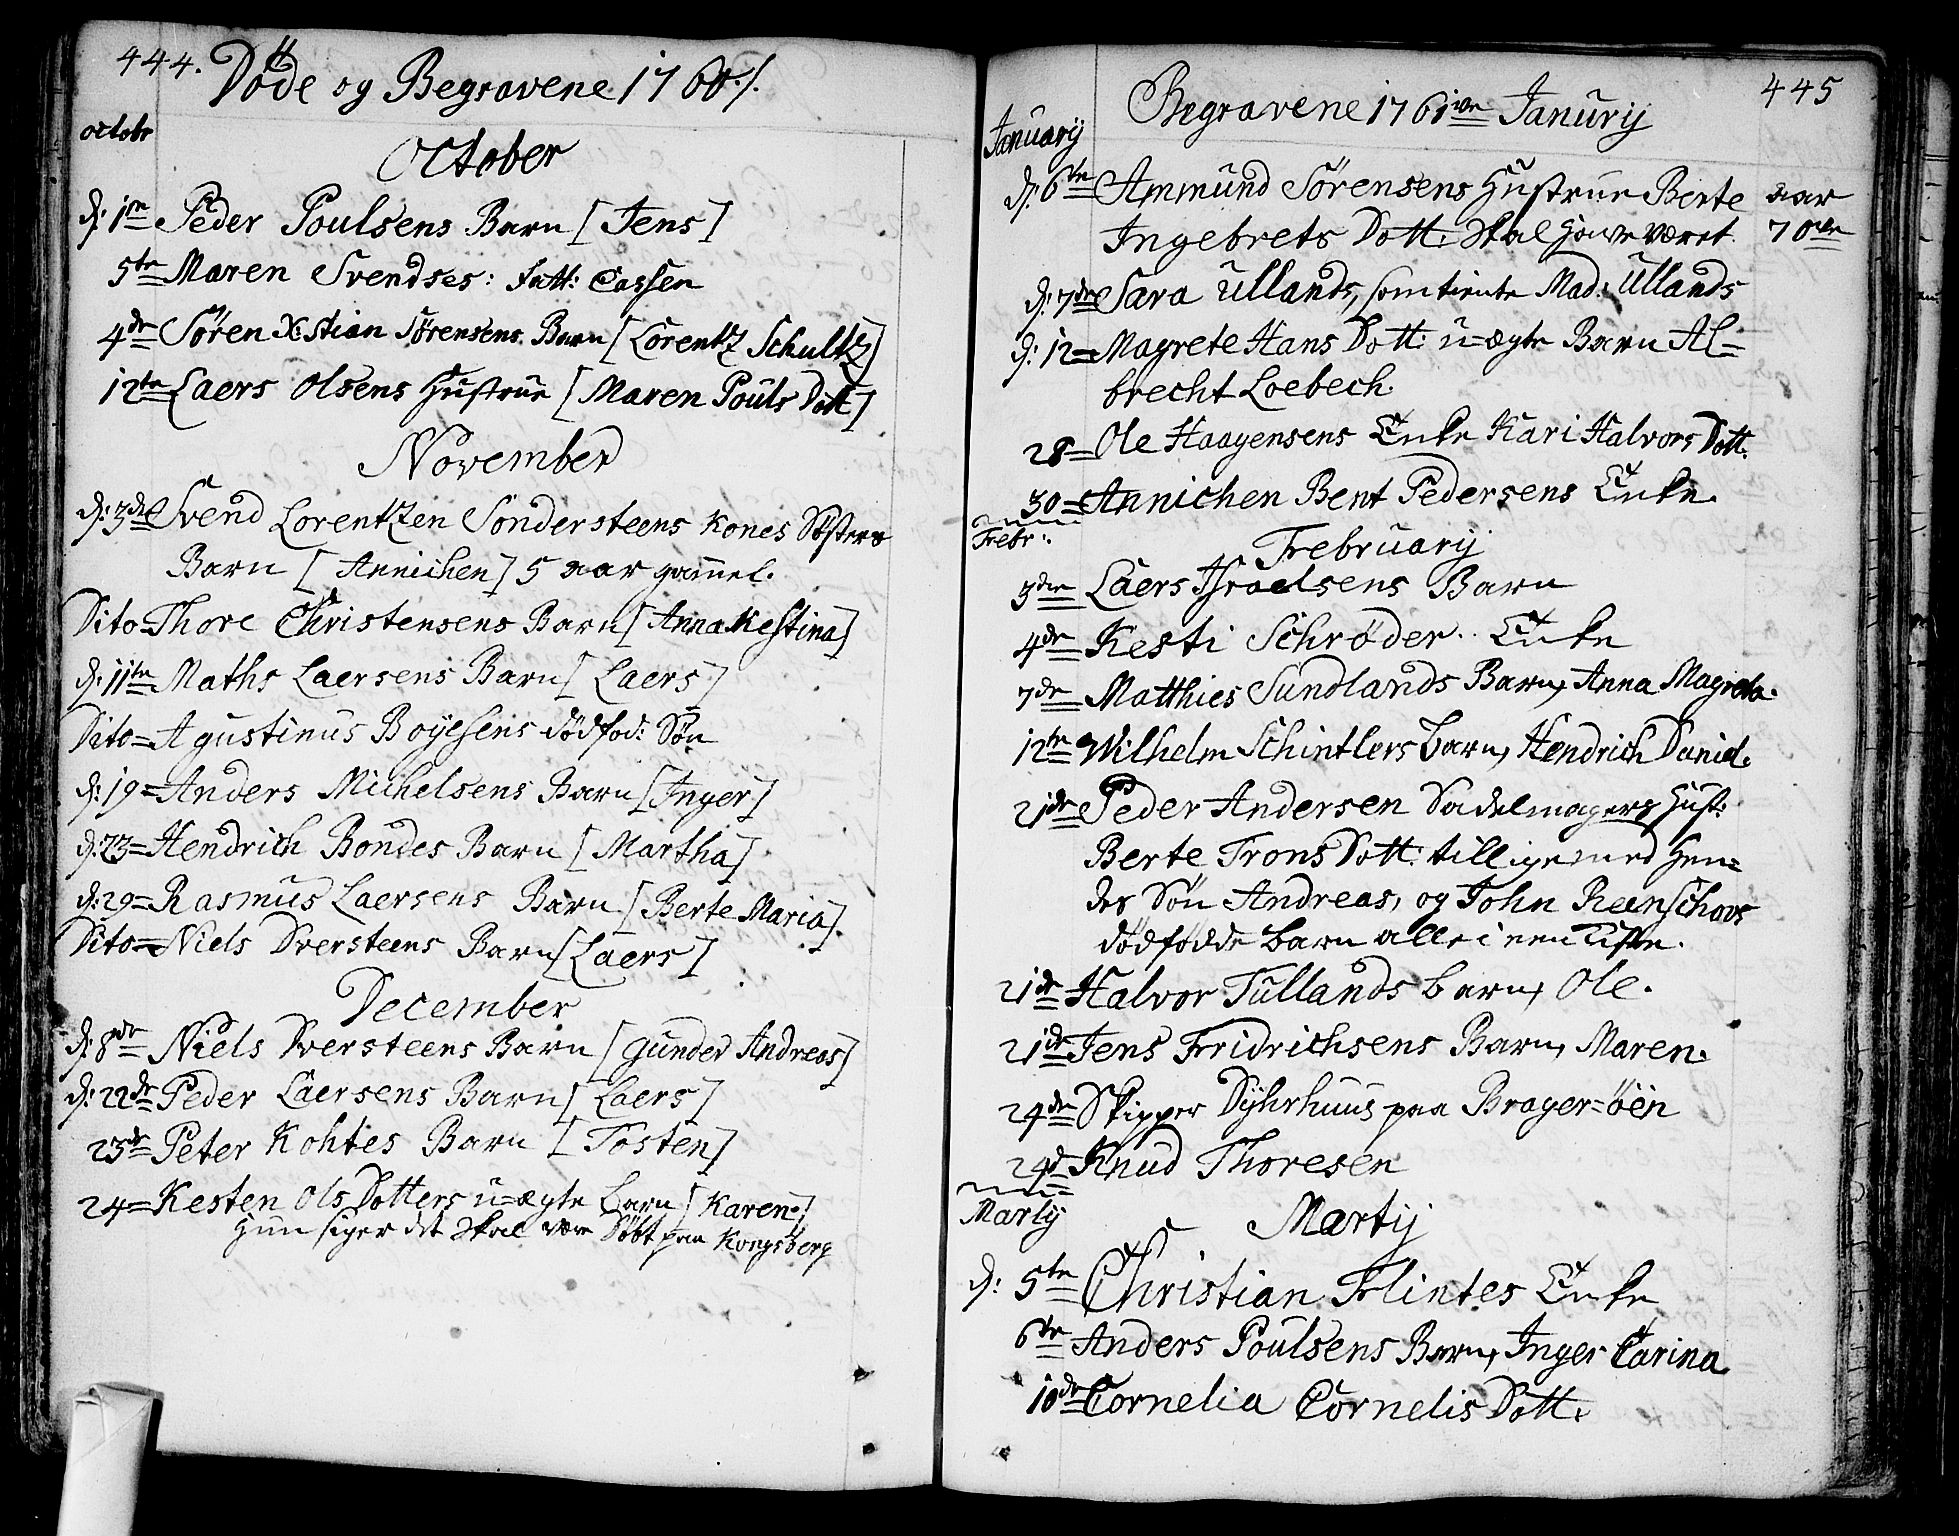 444.
Døde og Begravene 1760./.
octobr
October
d: 1te Peder Poulsens Barn [Jens]
5te Maren Svendses: fatt: Cassen
4de Søren X:stian Sørensens Barn [Lorentz Schultz]
12te Laers Olsens Hustrue [Maren Pouls Dott]
November
d: 3die Svend Lorentzen Søndersteens Kones Søsters
Barn [Annichen] 5 aar gammel.
Dito Thore Christensens Barn [Anna Kestina]
d: 11te Maths Laersens Barn [Laers]
Dito= Agustinus Boyesens dødfod: Søn
d: 19= Anders Michelsens Barn [Inger]
d: 23= Hendrich Bondes Barn [Martha]
d: 29= Rasmus Laersens Barn [Berte Maria].
Dito= Niels Dversteens Barn [Laers]
December
d: 8de Niels Dversteens Barn [Gunder Andreas]
d: 22de Peder Laersens Barn [Laers]
23de Peter Kohtes Barn [Tosten]
24= Kesten Ols Dotters u=ægte Barn [Karen.]
Hun siger det skal være Døbt paa Kongsberg
445
Begravene 1761ve Janurij
Januarij
d: 6te Ammund Sørensens Hustrue Berte aar
Ingebrets Dott: skal Have været 70ve
d: 7de Sara Ullands, som tiente Mad: Ullands
d: 12= Magrete Hans Dott: u=ægte Barn Al=
brecht Loebech.
28= Ole Haagensens Enke Kari Halvors Dott.
30= Annichen Bent Pedersens Enke.
Febr:
February
3die Laers Israelsens Barn
4de Kesti Schrøder.. Enke
7de Matthies Sundlands Barn, Anna Magreta.
12te Wilhelm Schintlers Barn, Hendrich Daniel.
21de Peder Andersen Sadelmagers Hust:
Berte Trons Dott: tillige med Hen=
des Søn Andreas, og John Reenschovs
dødfødde Barn alle i een Kiste.
21de Halvor Tullands Barn, Ole.
21de Jens Fridrichsens Barn, Maren.
24de Skipper Dyhrhuus paa Brager=öen
24d Knud Thoresen
Martij
Martij
d: 5te Christian Flintes Enke
6te Anders Poulsens Barn, Inger Carina
10de Cornelia Cornelis Dott.